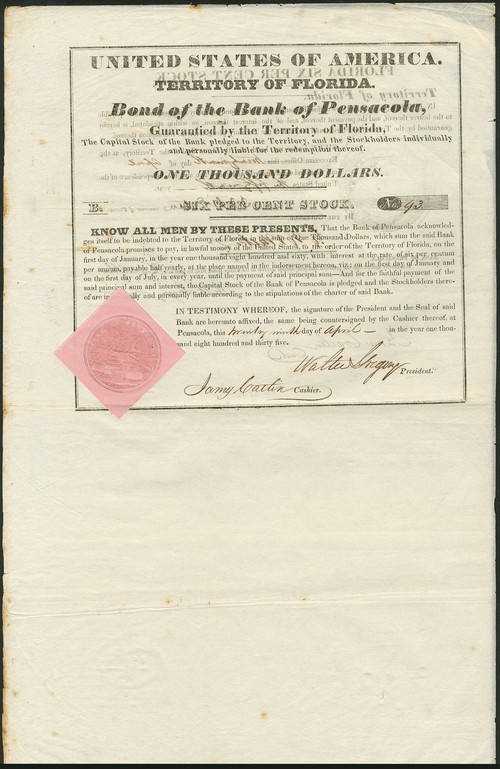 UNITED STATES OF AMERICA.
TERRITORY OF FLORIDA.
Bond of the Bank of Pensacola,
Guarantied by the Territory of Florida,
The Capital Stock of the Bank pledged to the Territory, and the Stockholders individually
and personally liable for the redemption thereof.
ONE THOUSAND DOLLARS.
B. SIX PER CENT STOCK. No 93
KNOW ALL MEN BY THESE PRESENTS, That the Bank of Pensacola acknowled-
ges itself to be indebted to the Territory of Florida in the sum of One Thousand Dollars, which sum the said Bank
of Pensacola promises to pay, in lawful money of the United States, to the order of the Territory of Florida, on the
first day of January, in the year one thousand eight hundred and sixty, with interest at the rate of six per centum
per annum, payable half yearly, at the place named in the indorsement hereon, viz: on the first day of January and
on the first day of July, in every year, until the payment of said principal sum—And for the faithful payment of the
said principal sum and interest, the Capital Stock of the Bank of Pensacola is pledged and the Stockholders there-
of are individually and personally liable according to the stipulations of the charter of said Bank.
IN TESTIMONY WHEREOF, the signature of the President and the Seal of said
Bank are hereunto affixed, the same being countersigned by the Cashier thereof, at
Pensacola, this twenty ninth day of April — in the year one thou-
sand eight hundred and thirty five.
Walter Gregory President.
Jamy Catlin Cashier.